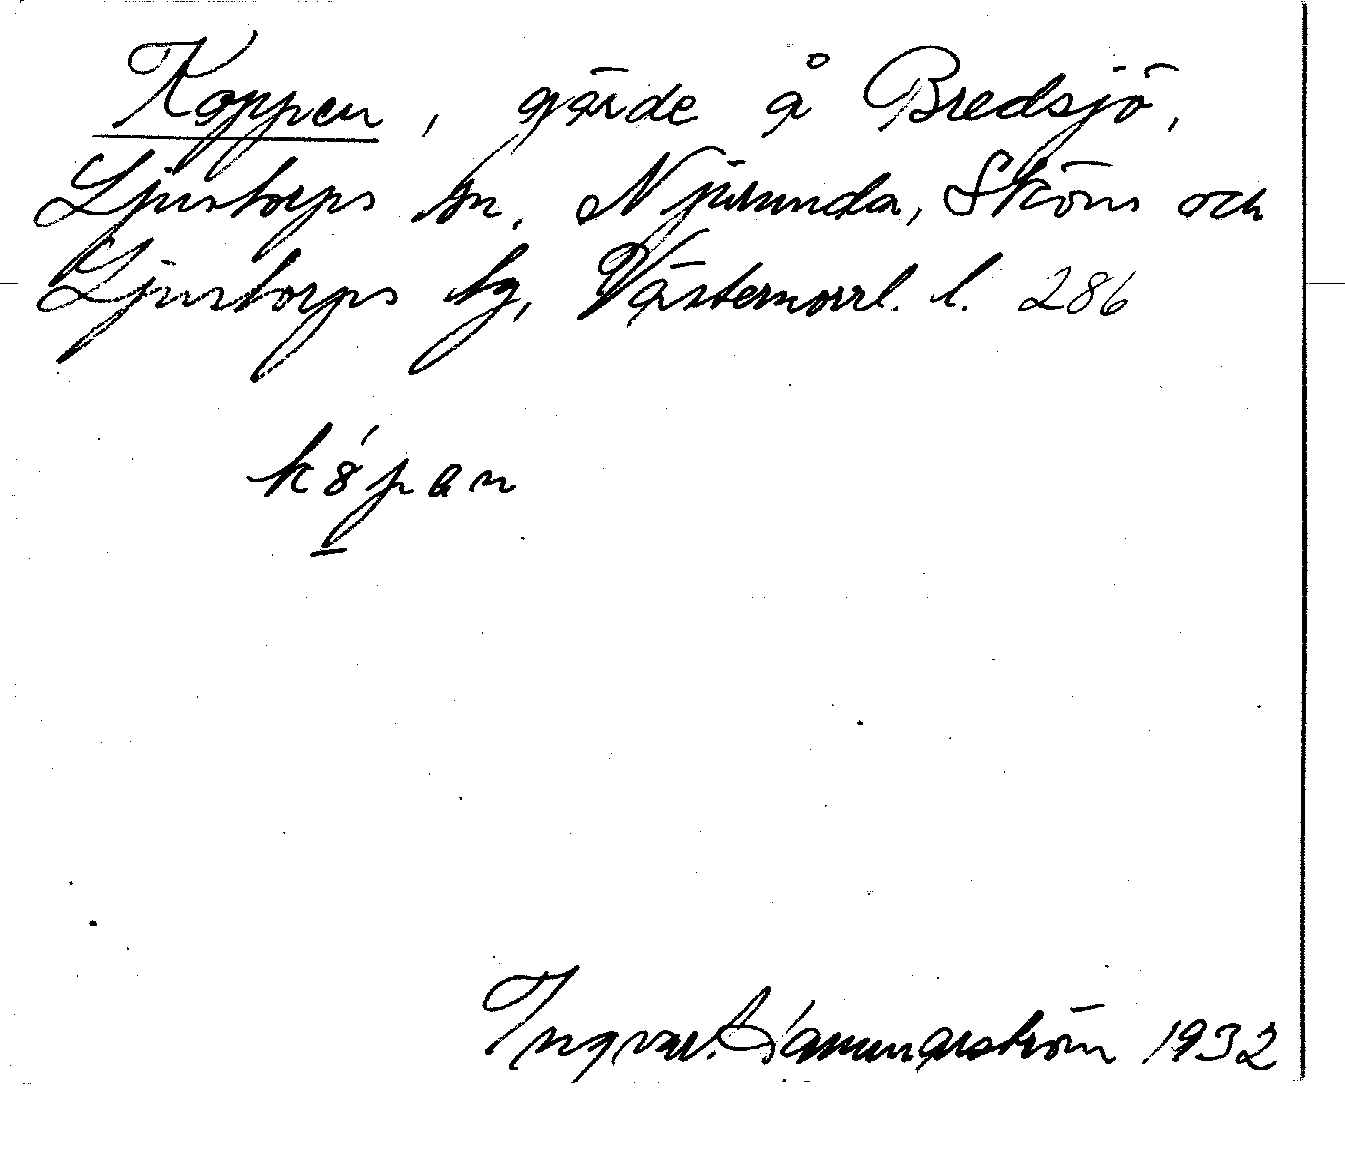 Koppen, gärde å Bredsjö,
Ljustorps sn. Njurunda, Sköns och
Ljustorps tg, Västernorrl. l. 286
kȣ́pan
Ingvar. Hammarström 1932